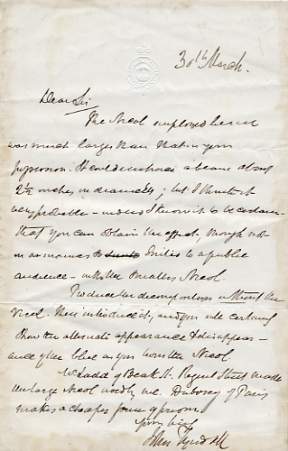 30th March.
Dear Sir
The Nicol employed here
was much larger than that in your
possession. It could embrace a beam about
2½ inches in diameter; but I think it
very probable - indeed I know it to be certain
that you can obtain the effect, though not
in so
to a public
audience - with the smaller Nicol
Produce the decomposition without the
Nicol. Then introduce it, and you will certainly
show the alternate appearance & disappear-
ance of the blue as you turn the Nicol
Ladd of Beak St. Regent Street made
the large Nicol used by me. Duboscq of Paris
makes a cheaper form of prism
Yours truly
John Tyndall